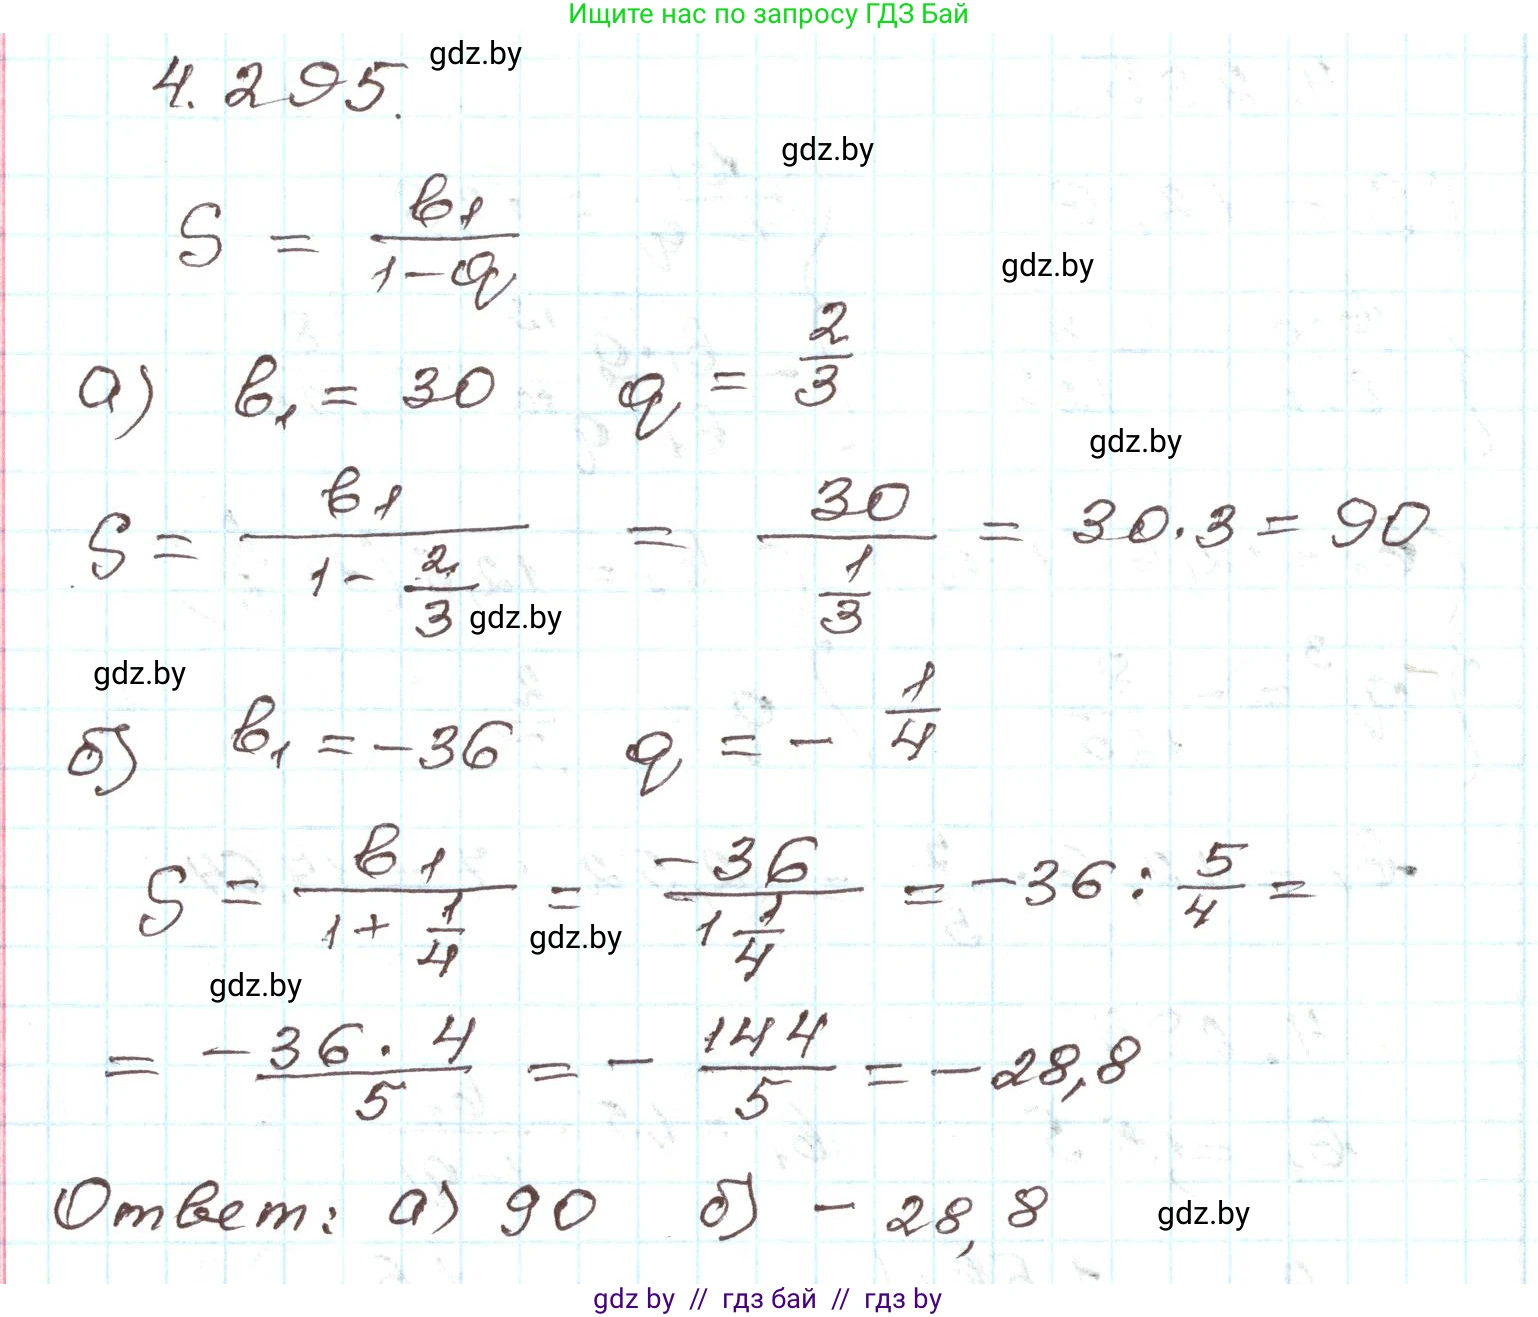 Ищите нас по запросу ГДЗ Бай
4.295. gdz.by
gdz.by
S = b₁/(1-q)
gdz.by
а) b₁ = 30 q = 2/3
gdz.by
S = b₁/(1 - 2/3) = 30/(1/3) = 30·3 = 90
gdz.by
gdz.by
б) b₁ = -36 q = -1/4
S = b₁/(1 + 1/4) = -36/(1 1/4) = -36 : 5/4 =
gdz.by
gdz.by
= -36·4/5 = -144/5 = -28,8
Ответ: а) 90 б) -28,8 gdz.by
gdz by // гдз бай // гдз by